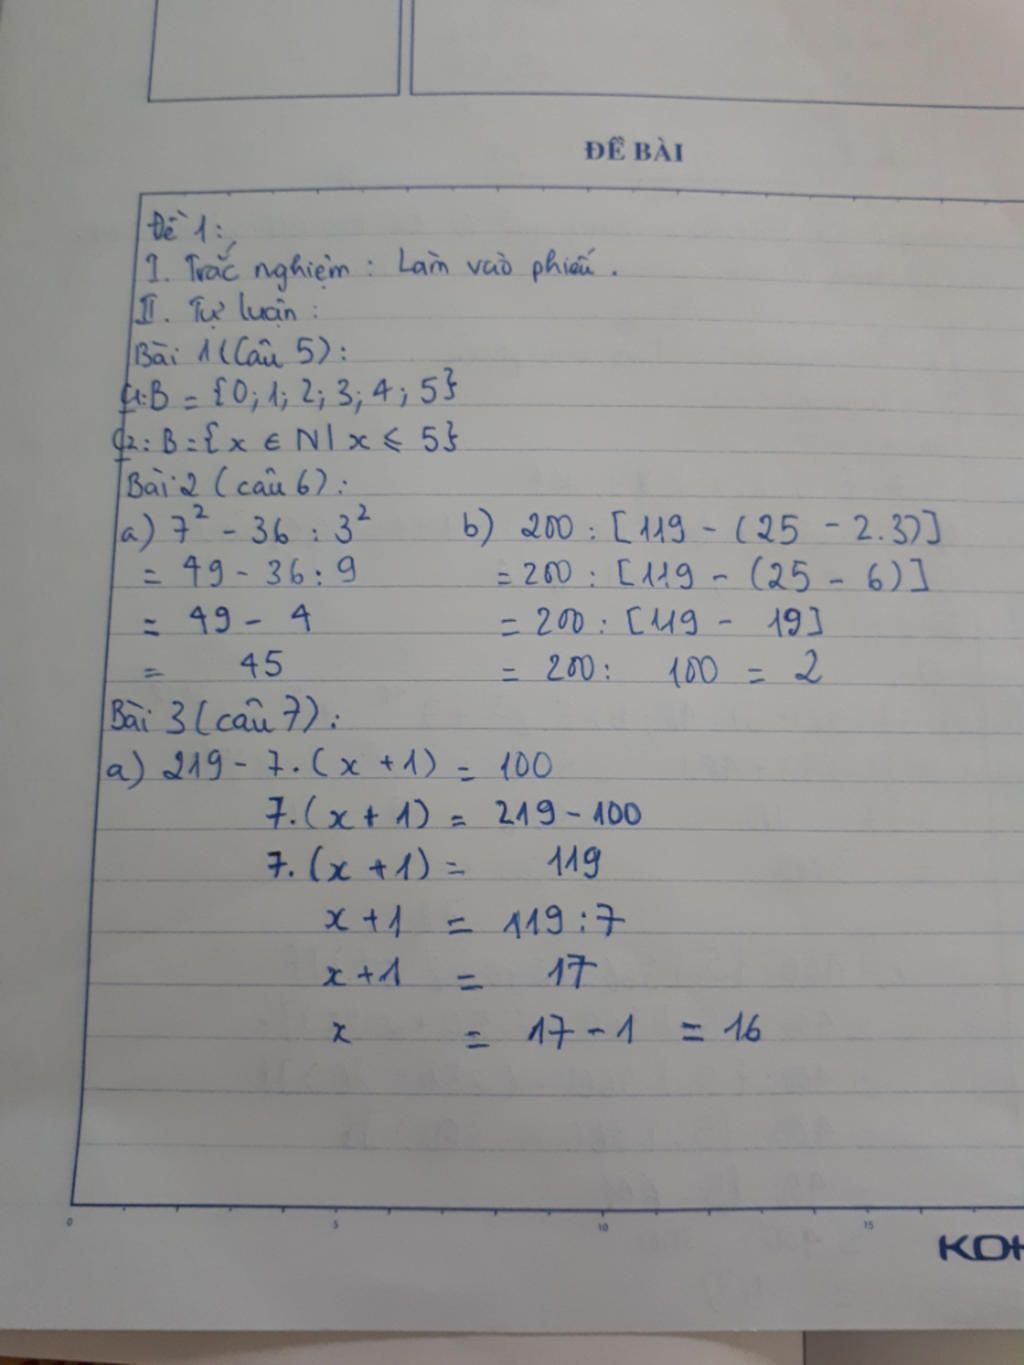 ĐỀ BÀI
Đề 1:
I. Trắc nghiệm: Làm vào phiếu.
II. Tự luận:
Bài 1 (Câu 5):
C1: B = {0; 1; 2; 3; 4; 5}
C2: B = {x ∈ N | x ⩽ 5}
Bài 2 (câu 6):
a) 7² - 36 : 3² b) 200 : [119 - (25 - 2.3)]
= 49 - 36 : 9 = 200 : [119 - (25 - 6)]
= 49 - 4 = 200 : [119 - 19]
= 45 = 200 : 100 = 2
Bài 3 (câu 7):
a) 219 - 7.(x + 1) = 100
7.(x + 1) = 219 - 100
7.(x + 1) = 119
x + 1 = 119 : 7
x + 1 = 17
x = 17 - 1 = 16
0 5 10 15